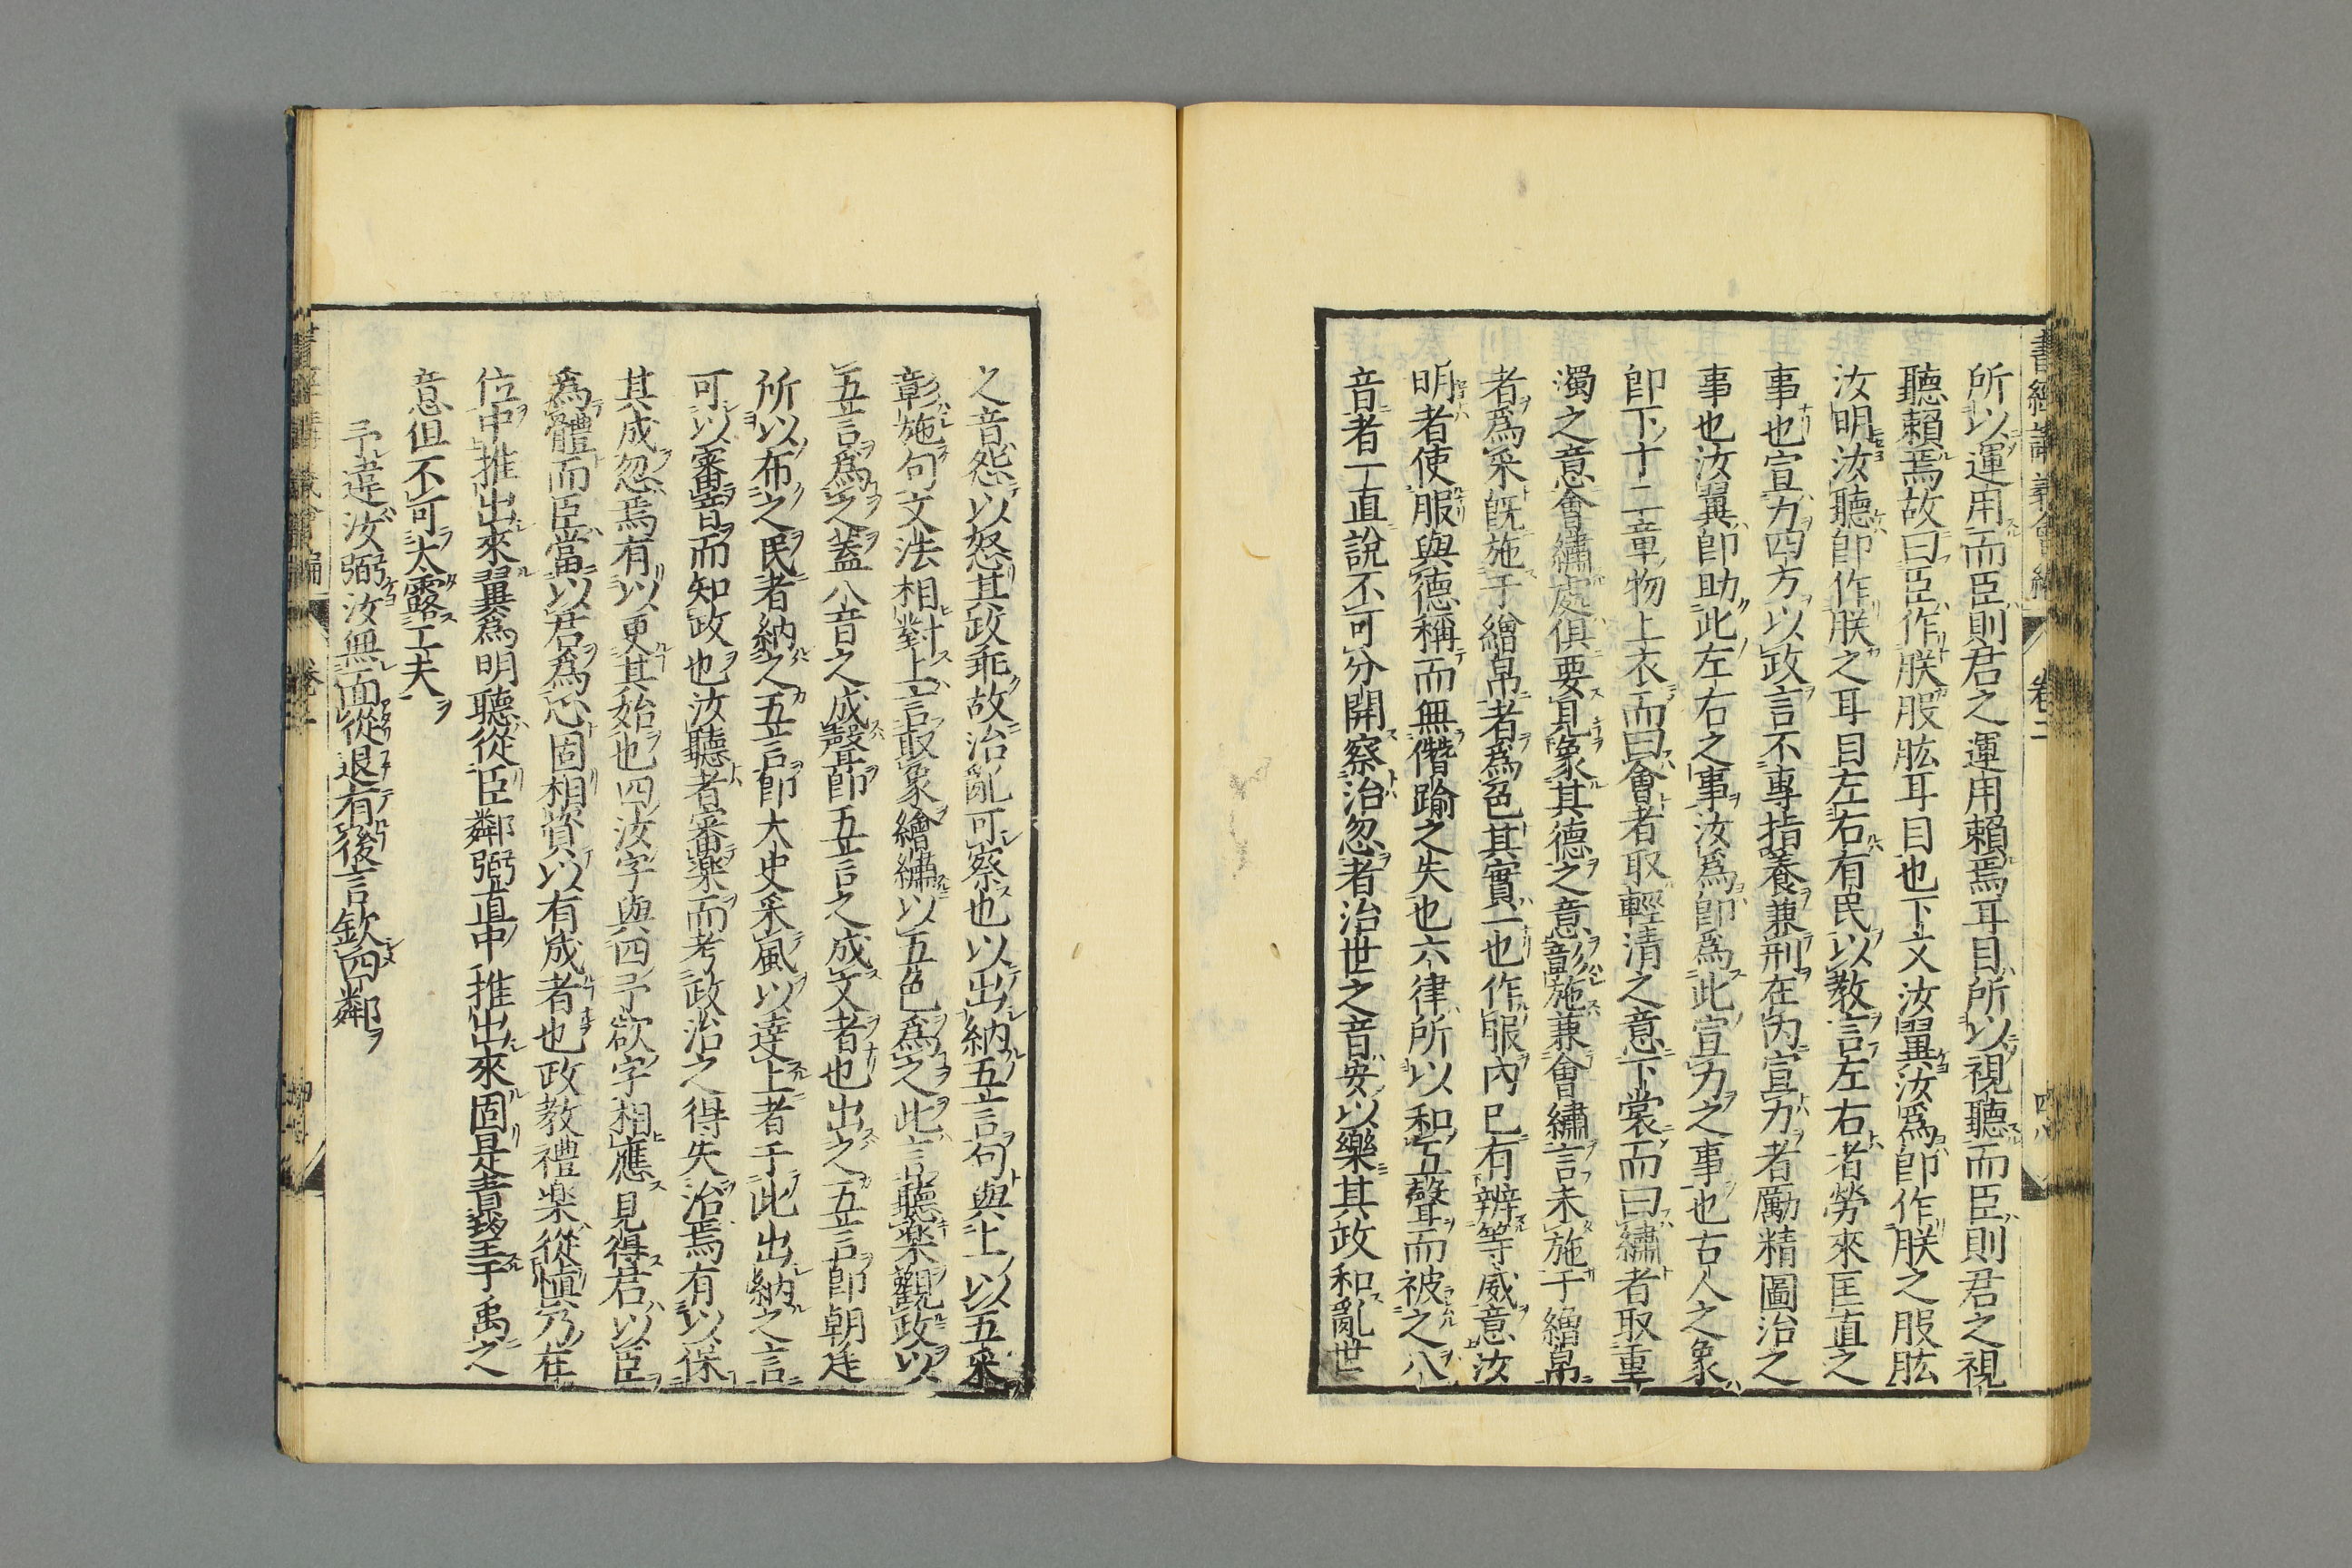 書經講義會編 卷二 四八
所以運用而臣則君之運用賴焉耳目所以視聽而臣則君之視
聽賴焉故曰臣作朕股肱耳目也下文汝翼汝爲卽作朕之股肱
汝明汝聽卽作朕之耳目左右有民以敎言左右者勞來匡直之
事也宣力四方以政言不專指養兼刑在內宣力者勵精圖治之
事也汝翼卽助此左右之事汝爲卽爲此宣力之事也古人之象
卽下十二章物上衣而曰會者取輕清之意下裳而曰繡者取重
濁之意會繡處俱要見象其德之意彰施兼會繡言未施于繒帛
者爲采旣施于繒帛者爲色其實一也作服內已有辨等威意汝
明者使服與德稱而無僭踰之失也六律所以和五聲而被之八
音者一直說不可分開察治忽者治世之音安以樂其政和亂世
之音怨以怒其政乖故治亂可察也以出納五言句與上以五采
彰施句文法相對上言取象繪繡以五色爲之此言聽楽觀政以
五言爲之蓋八音之成聲卽五言之成文者也出之五言卽朝廷
所以布之民者納之五言卽大史采風以達上者于此出納之言
可以審音而知政也汝聽者審楽而考政治之得失治焉有以保
其成忽焉有以更其始也四汝字與四予欲字相應見得君以臣
爲體而臣當以君爲心固相資以有成者也政教禮楽從愼乃在
位中推出來翼爲明聽從臣鄰弼直中推出來固是責望于禹之
意但不可太露工夫
予違汝弼汝無面從退有後言欽四鄰